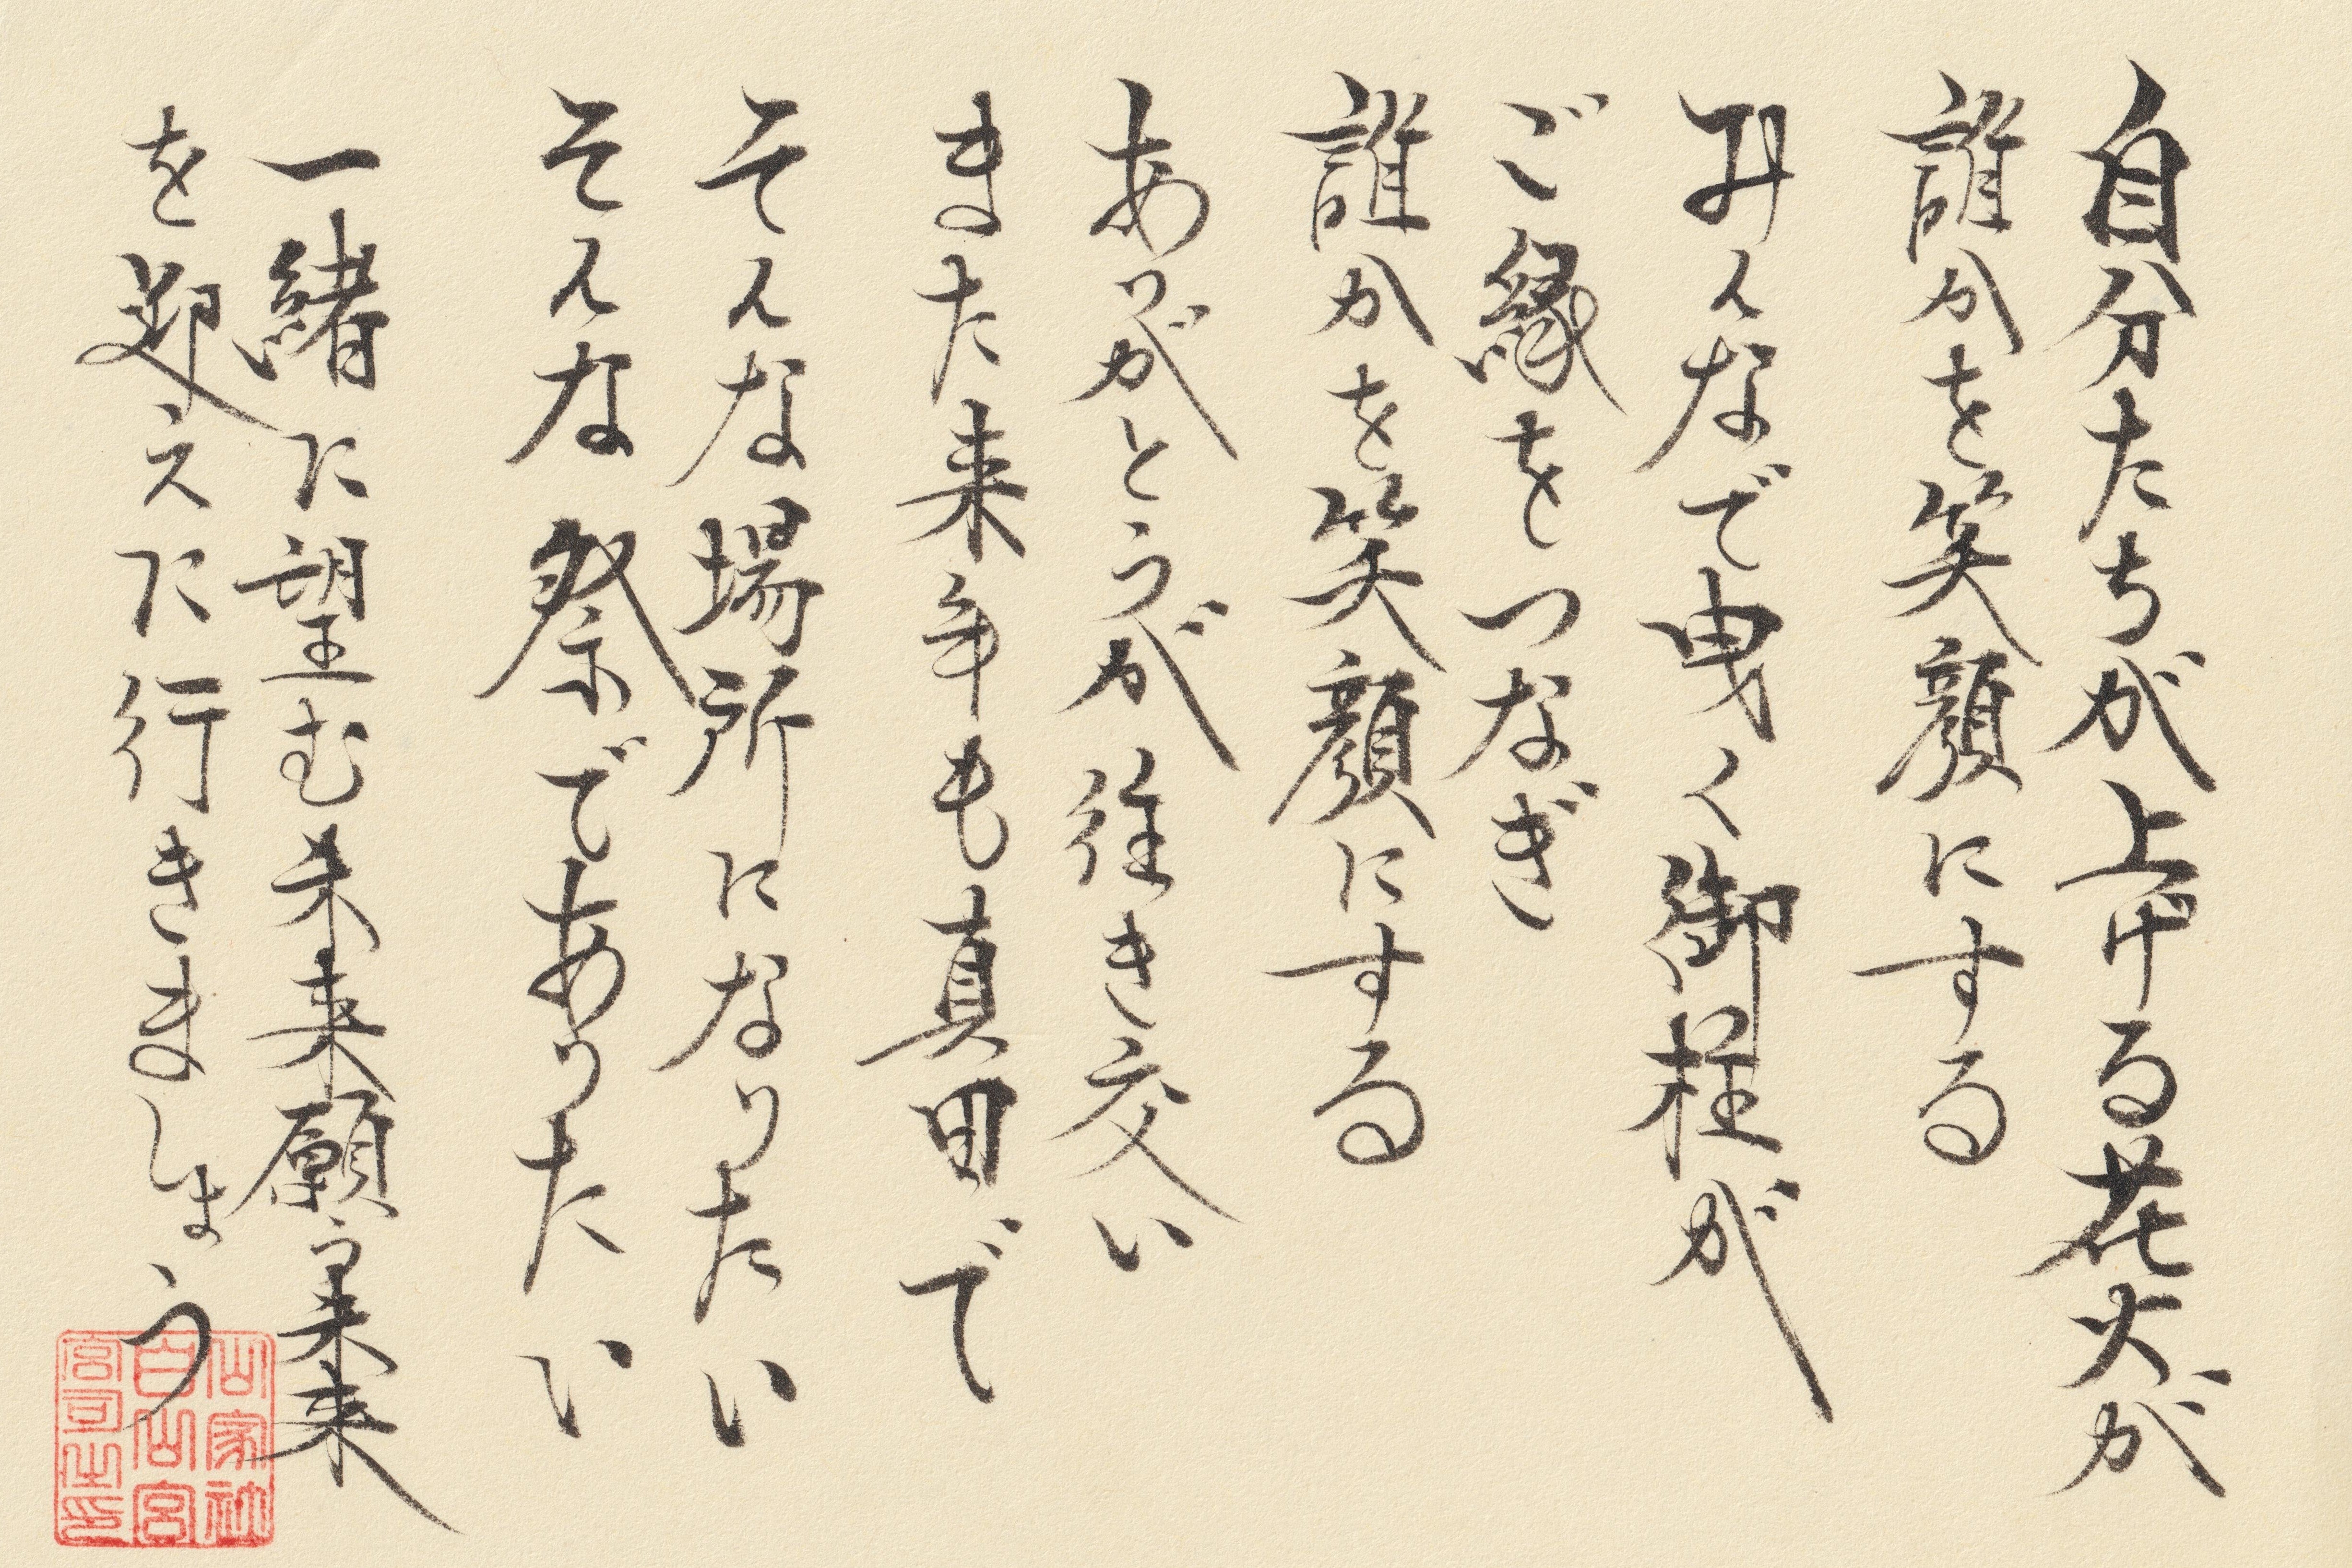 自分たちが上げる花火が
誰かを笑顔にする
みんなで曳く御柱が
ご縁をつなぎ
誰かを笑顔にする
ありがとうが往き交い
また来年も真田で
そんな場所になりたい
そんな祭でありたい
一緒に望む未来願う未来
を迎えに行きましょう
山家社
白山宮
宮司之印